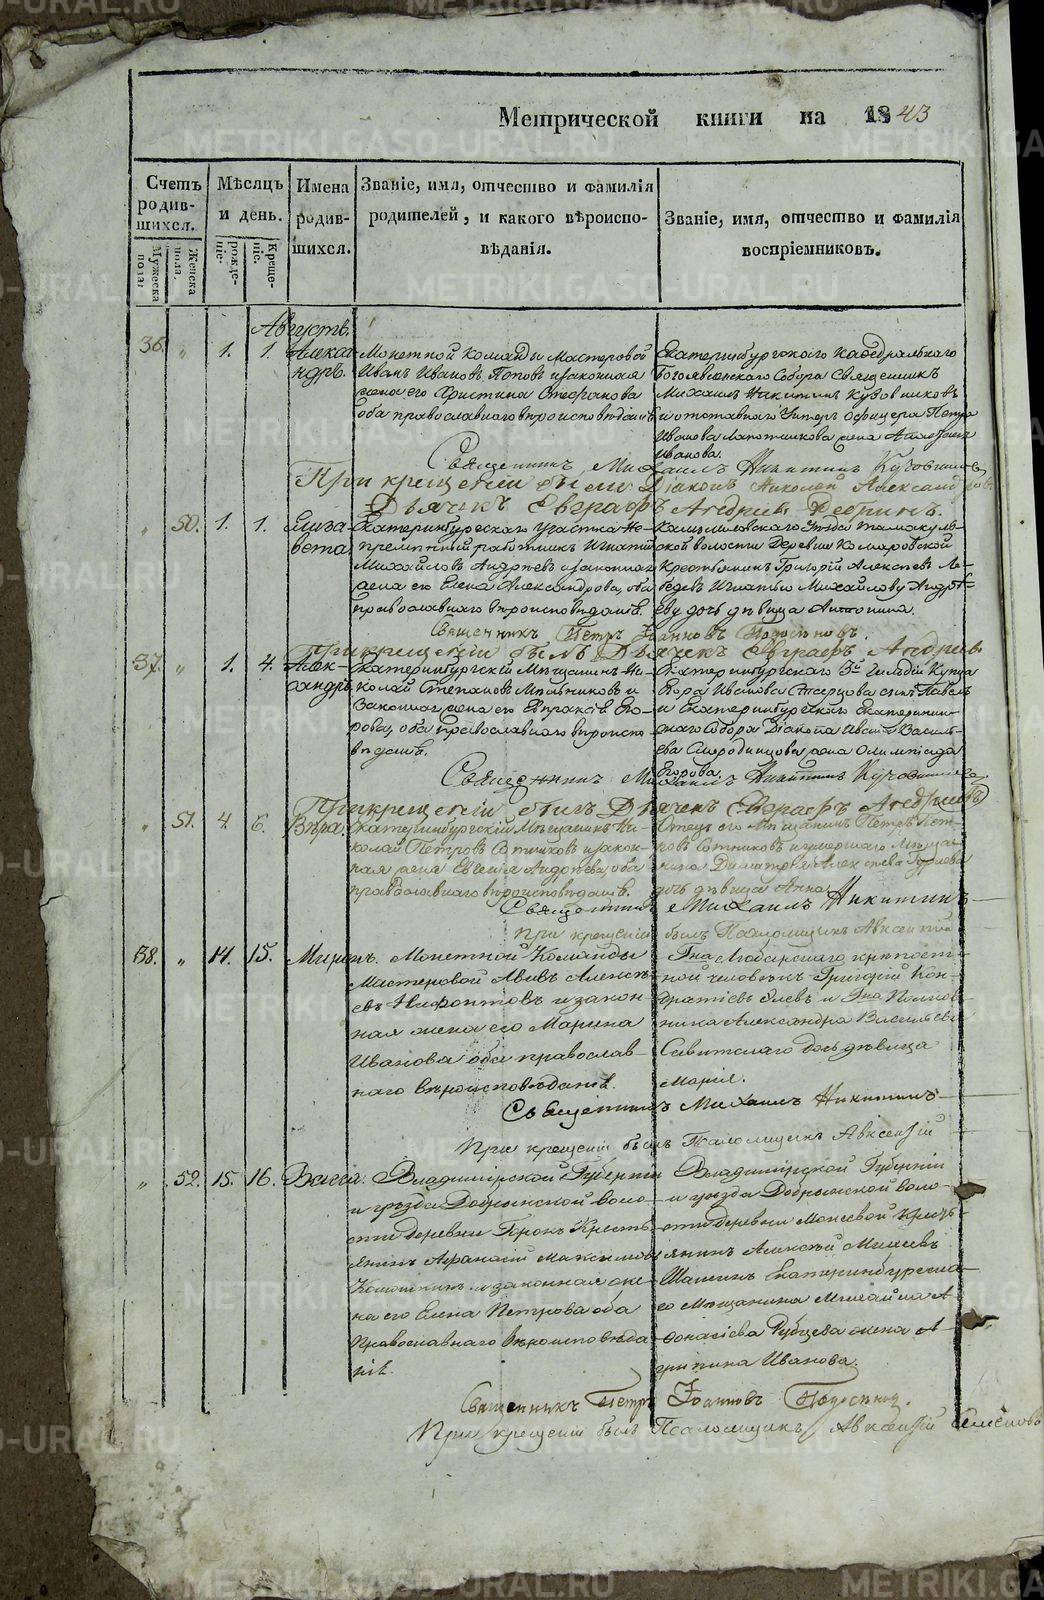 Метрической книги на 1843
Счетъ родившихся.
Мужеска пола.
Женска пола.
Мѣсяцъ и день.
рожденіе.
Крещеніе.
Имена родившихся.
Званіе, имя, отчество и фамилія родителей, и какого вѣроисповѣданія.
Званіе, имя, отчество и фамилія воспріемниковъ.
Августъ.
36. " 1. 1. Александръ.
Монетной Команды Мастеровой
Иванъ Ивановъ Поповъ и законная
жена его Христина Стефанова
оба православнаго вѣроисповѣданія
Екатеринбургскаго Кафедральнаго
Богоявленскаго Собора Священникъ
Михаилъ Никитинъ Кузовниковъ
и отставнаго Унтеръ Офицера Петра
Иванова Лапотникова жена
Иванова.
Священникъ Михаилъ Никитинъ Кузовниковъ
При крещеніи были Діаконъ Николай Александровъ
Дьячекъ Евграфъ Андріевъ
" 50. 1. 1. Елизавета
Екатеринбургскаго участка Не-
премѣнный работникъ Игнатій
Михайловъ Андрѣевъ и законная
жена его Елена Александрова, оба
православнаго вѣроисповѣданія.
Камышловскаго Уѣзда Тамакуль-
ской волости Деревни Комаровской
Крестьянинъ Григорій Алексѣевъ Ле-
бедевъ Игнатія Михайлову Андрѣ-
еву дочь дѣвица Антонина.
Священникъ Петръ Іоанновъ
При крещеніи былъ Дьячекъ Евграфъ Андріевъ
37. " 1. 4. Александръ
Екатеринбургскій Мѣщанинъ Ни-
колай Степановъ Мѣльниковъ и
Законная жена его Евпраксія Его-
рова, оба Православнаго вѣроиспо-
вѣданія.
Екатеринбургскаго 3й Гильдіи Купца
Егора Иванова сынъ Павелъ
и Екатеринбургскаго Екатеринин-
скаго Собора Діакона Ивана Василь-
ева Смородинцова жена Олимпіада
Егорова.
Священникъ Михаилъ Никитинъ Кузовниковъ
При крещеніи былъ Дьячекъ Евграфъ Андріевъ
" 51. 4. 6. Вѣра.
Екатеринбургскій Мѣщанинъ Ни-
колай Петровъ Сотниковъ и закон-
ная жена Евгенія Андрѣева, оба
православнаго вѣроисповѣданія.
Отецъ его Мѣщанинъ Петръ Пет-
ровъ Сотниковъ и умершаго Мѣща-
нина Димитрія Алексѣева
дочь дѣвица Анна.
Священникъ Михаилъ Никитинъ
При крещеніи былъ Псаломщикъ Авксентій
38. " 14. 15. Миронъ.
Монетной Команды
Мастеровой Авивъ Алексѣ-
евъ Нифонтовъ и закон-
ная жена его Марина
Иванова оба православ-
наго вѣроисповѣданія.
Гна Любарскаго крѣпост-
ной человѣкъ Григорій Кон-
дратіевъ и Гна Полков-
ника Александра Васильева
дочь дѣвица
Марія.
Священникъ Михаилъ Никитинъ
При крещеніи былъ Псаломщикъ Авксентій
" 52. 15. 16. Васса.
Владимірской Губерніи
и уѣзда Добрынской воло-
сти деревни Крестьянинъ
Афанасій Максимовъ
и законная же-
на его Елена Петрова оба
Православнаго вѣроисповѣда-
нія.
Владимірской Губерніи
и уѣзда Добрынской воло-
сти деревни Крестьянинъ
Алексѣй
Екатеринбургска-
го Мѣщанина Михайла А-
фонасіева Рубцева жена А-
грипина Иванова.
Священникъ Петръ Іоанновъ
При крещеніи былъ Псаломщикъ Авксентій Семеновъ
METRIKI.GASO-URAL.RU